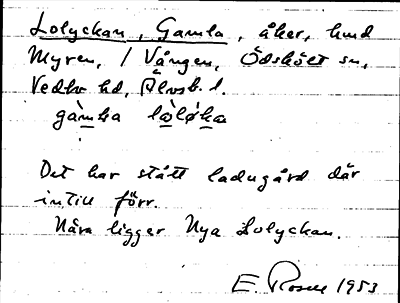 Lolyckan, Gamla, åker, hmd
Myren, / Vången, Ödskölt sn,
Vedbo hd, Älvsb. l.
gàmla lòløka
Det har stått ladugård där
intill förr.
Nära ligger Nya Lolyckan.
E Rosell 1953